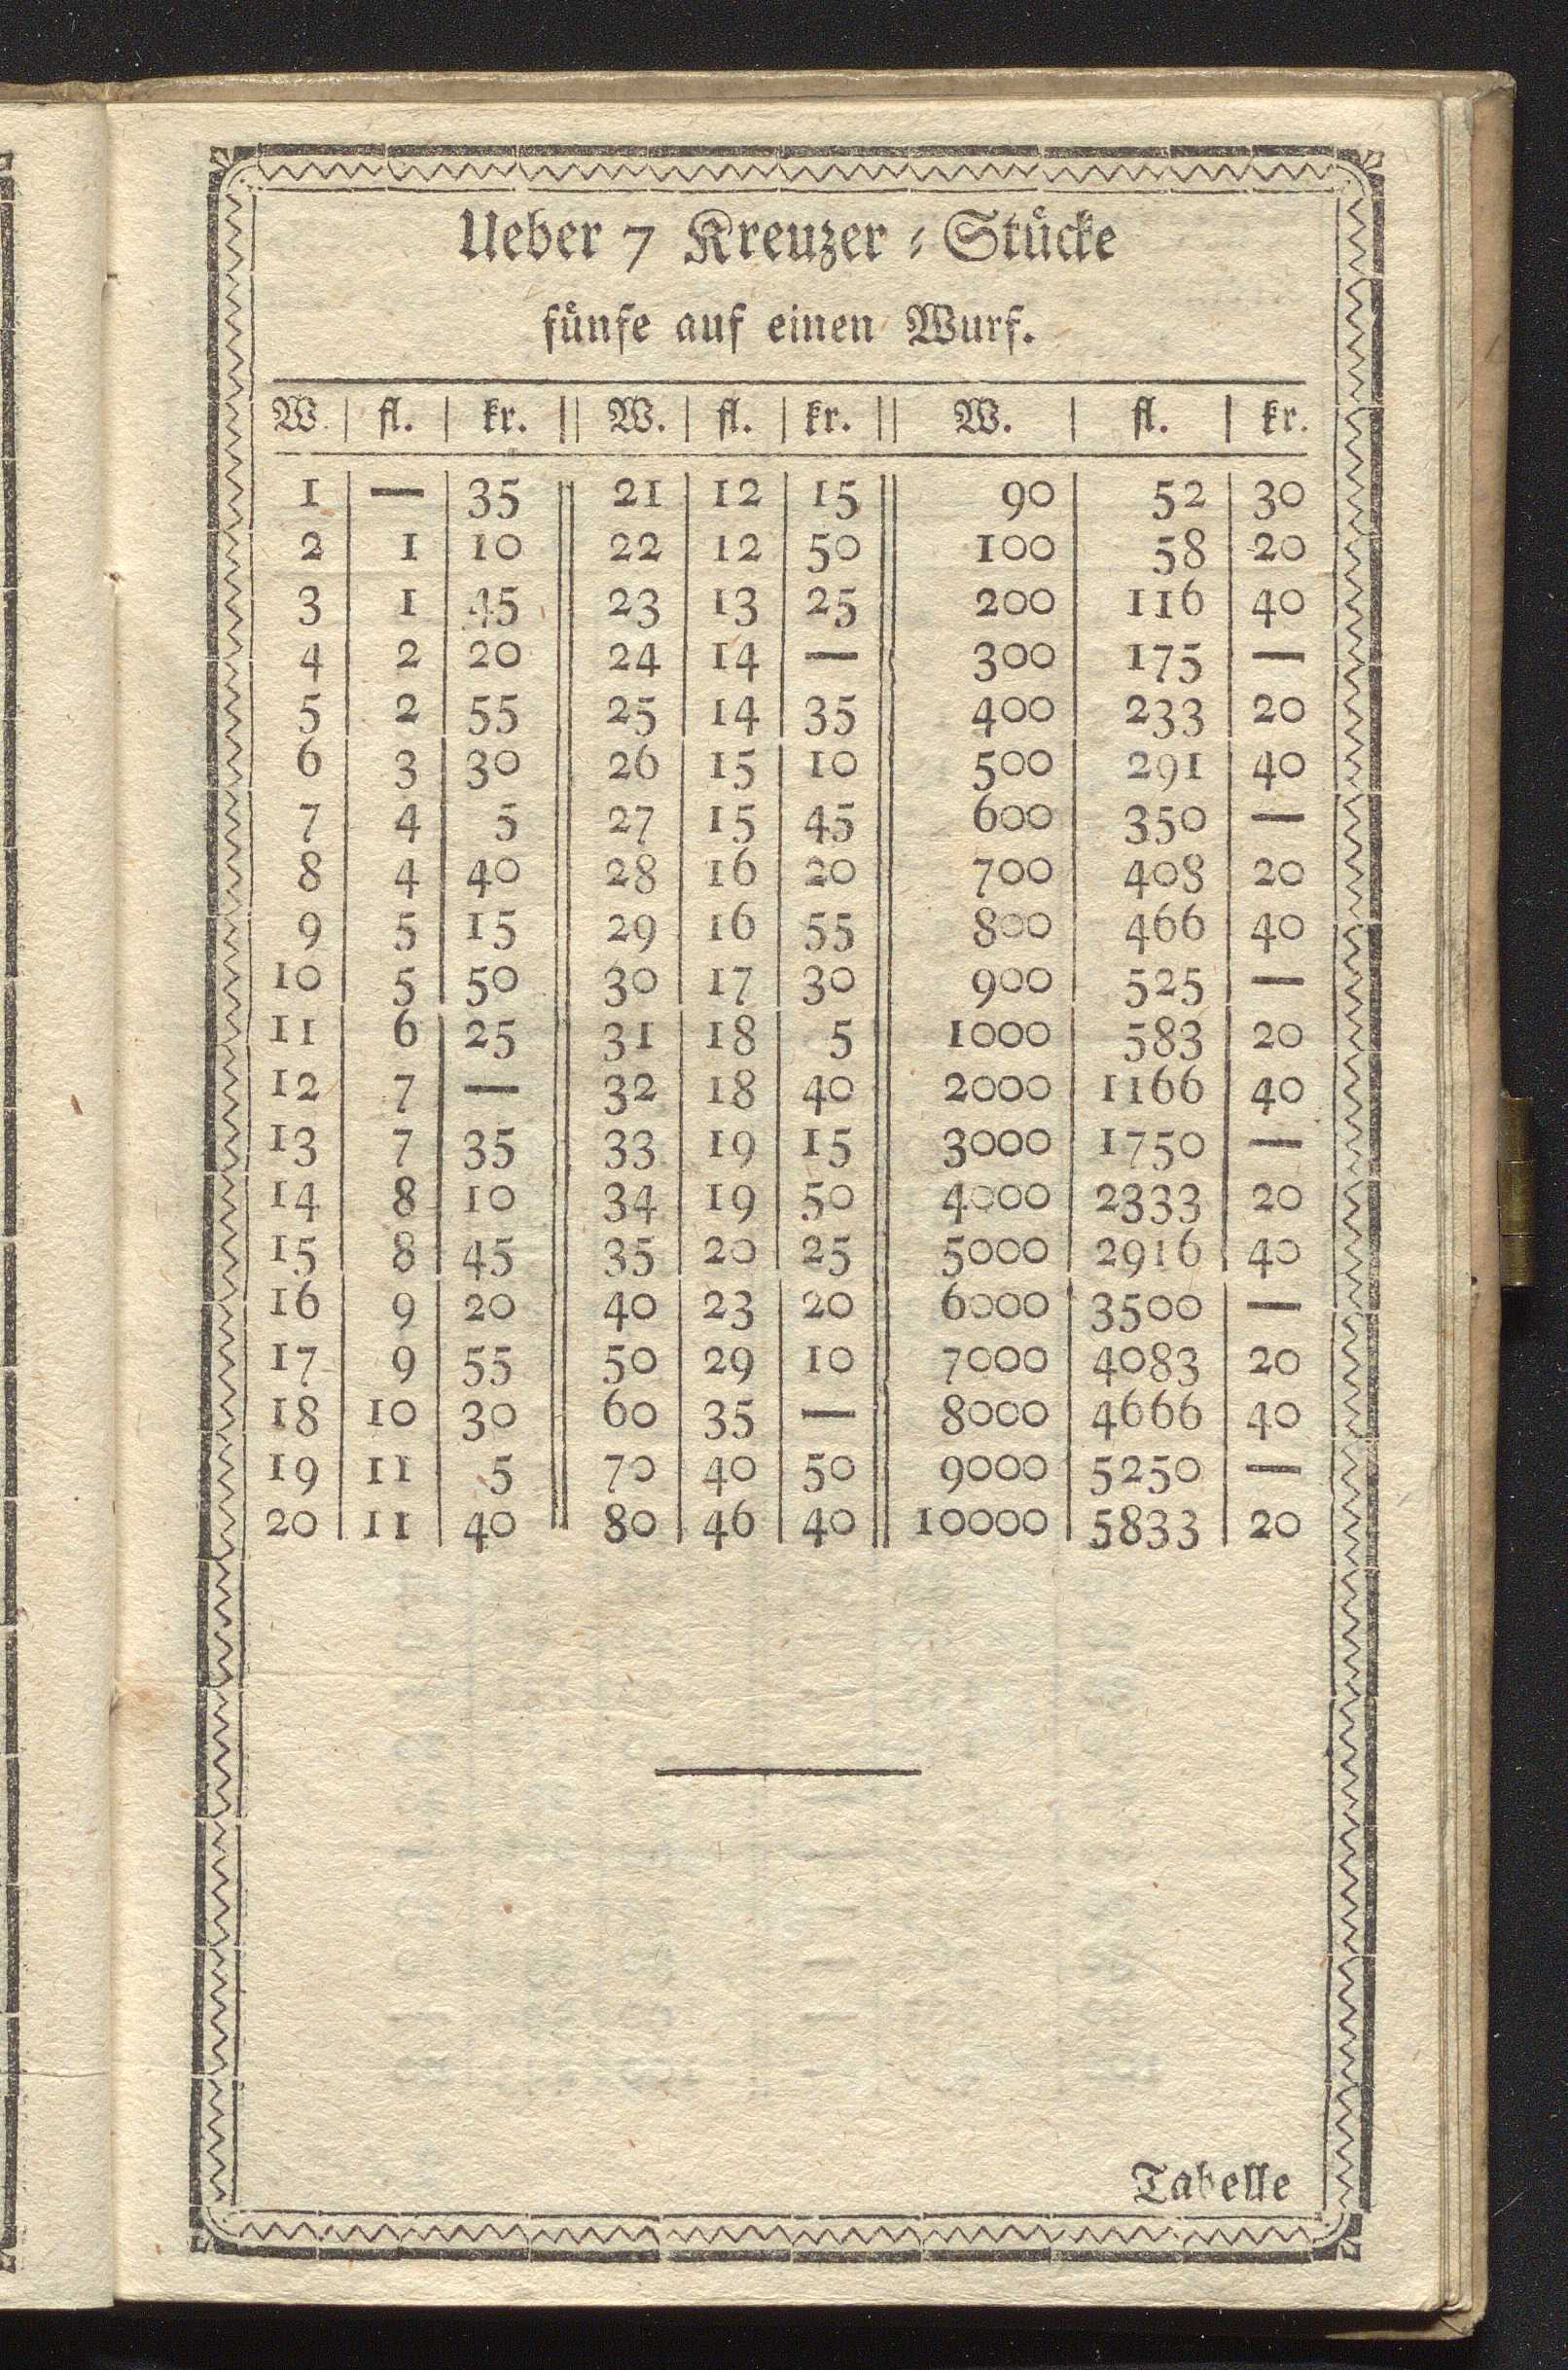 Ueber 7 Kreuzer ⸗ Stuͤcke
fuͤnfe auf einen Wurf.
W. | fl. | kr. || W. | fl. | kr. || W. | fl. | kr.
1 | — | 35 || 21 | 12 | 15 || 90 | 52 | 30
2 | 1 | 10 || 22 | 12 | 50 || 100 | 58 | 20
3 | 1 | 45 || 23 | 13 | 25 || 200 | 116 | 40
4 | 2 | 20 || 24 | 14 | — || 300 | 175 | —
5 | 2 | 55 || 25 | 14 | 35 || 400 | 233 | 20
6 | 3 | 30 || 26 | 15 | 10 || 500 | 291 | 40
7 | 4 | 5 || 27 | 15 | 45 || 600 | 350 | —
8 | 4 | 40 || 28 | 16 | 20 || 700 | 408 | 20
9 | 5 | 15 || 29 | 16 | 55 || 800 | 466 | 40
10 | 5 | 50 || 30 | 17 | 30 || 900 | 525 | —
11 | 6 | 25 || 31 | 18 | 5 || 1000 | 583 | 20
12 | 7 | — || 32 | 18 | 40 || 2000 | 1166 | 40
13 | 7 | 35 || 33 | 19 | 15 || 3000 | 1750 | —
14 | 8 | 10 || 34 | 19 | 50 || 4000 | 2333 | 20
15 | 8 | 45 || 35 | 20 | 25 || 5000 | 2916 | 40
16 | 9 | 20 || 40 | 23 | 20 || 6000 | 3500 | —
17 | 9 | 55 || 50 | 29 | 10 || 7000 | 4083 | 20
18 | 10 | 30 || 60 | 35 | — || 8000 | 4666 | 40
19 | 11 | 5 || 70 | 40 | 50 || 9000 | 5250 | —
20 | 11 | 40 || 80 | 46 | 40 || 10000 | 5833 | 20
Tabelle